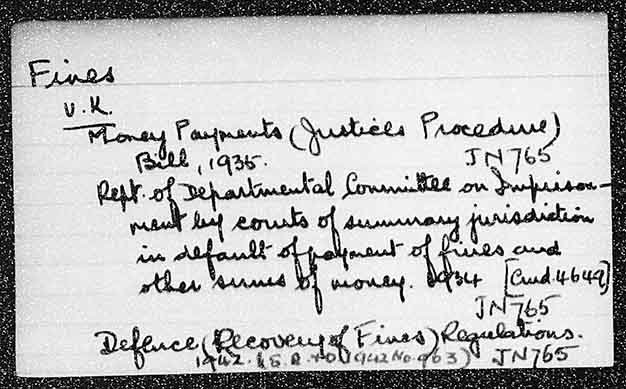 Fines
U.K.
Money Payments (Justices Procedure)
Bill, 1935. JN765
Rept. of Departmental Committee on Imprison-
ment by courts of summary jurisdiction
in default of payment of fines and
other sums of money. 1934 [Cmd.4649]
JN765
Defence (Recovery of Fines) Regulations.
1942. (S.R.&O. 1942 No. 963) JN765